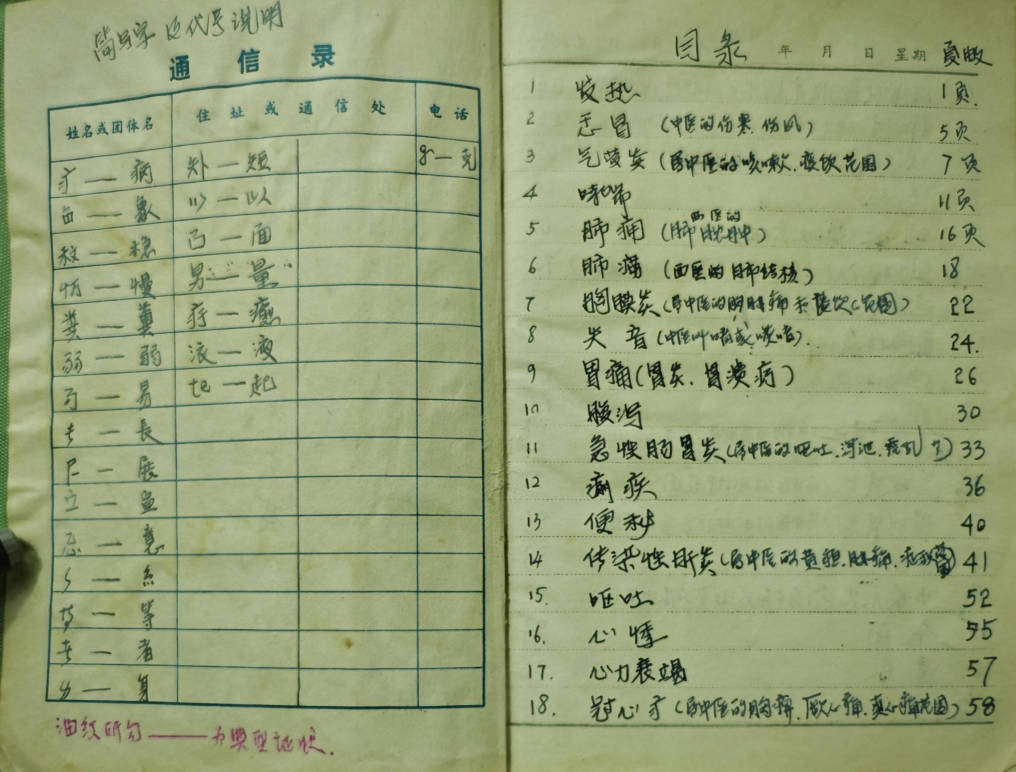 简写字及代号说明
通信录
姓名或团体名 住址或通信处 电话
疒 — 病 矢卜 — 短 — 克
— 象 — 以
— 稳 — 面
— 慢 男 — 量
— 粪 — 癒
— 弱 — 液
— 易 — 起
— 長
尸 — 展
— 血
— 意
— 糸
— 等
— 者
— 身
油纹所勾 —— 为典型证状.
目录 年 月 日 星期 頁版
1 发热 1页.
2 感冒 (中医的伤寒.伤风) 5页
3 气管炎 (属中医的咳嗽.痰饮范围) 7页
4 哮喘 11页
5 肺痈 (西医的肺脓肿) 16页
6 肺痨 (西医的肺结核) 18
7 胸膜炎 (属中医的胸胁痛和悬饮范围) 22
8 失音 (中医叫喑或喉喑). 24.
9 胃痛 (胃炎.胃溃疡) 26
10 腹泻 30
11 急性肠胃炎 (属中医的呕吐.泻泄.霍乱) 33
12 痢疾 36
13 便秘 40
14 传染性肝炎 (属中医的黄疸.胁痛.) 41
15. 呕吐 52
16. 心悸 55
17. 心力衰竭 57
18. 冠心疒 (属中医的胸痹.厥心痛.真心痛范围) 58